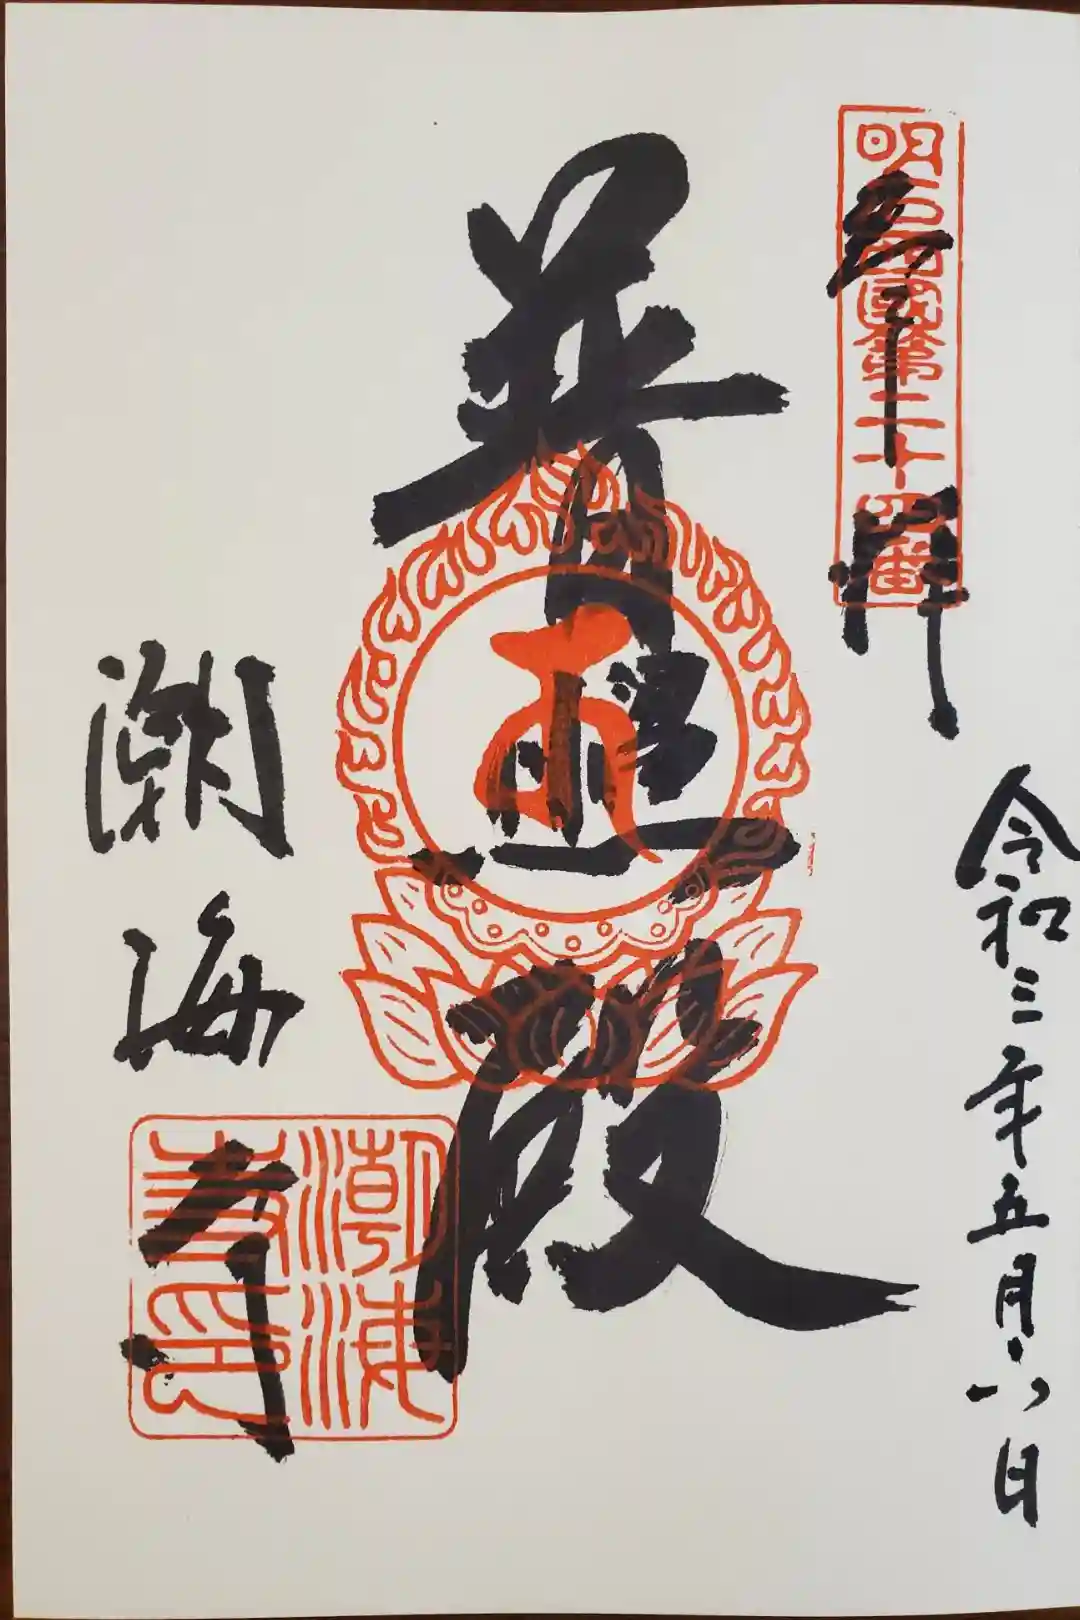 奉拝
明石西國第二十四番
令和三年五月六日
普 殿
潮海寺
潮海
寺印